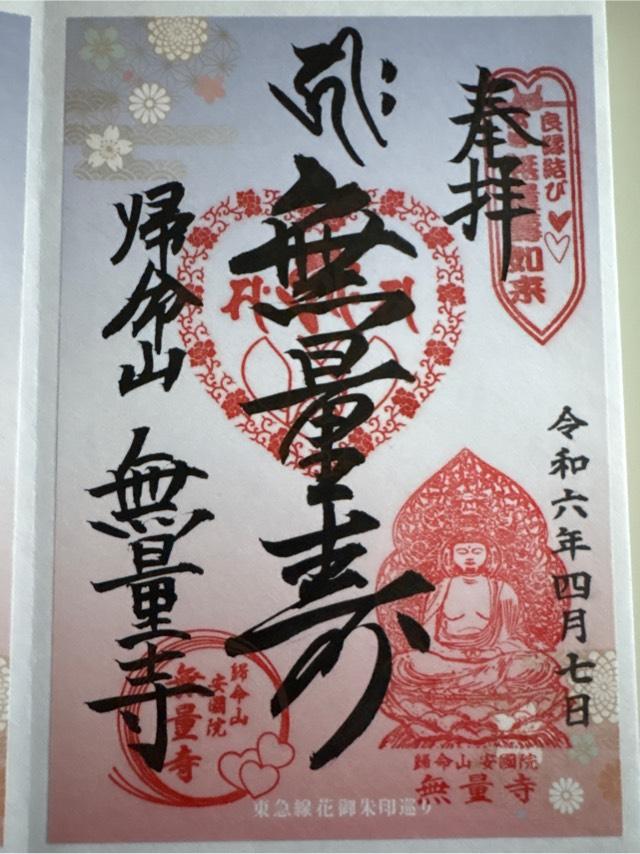 奉拝
良縁結び
無量寿如来
令和六年四月七日
無量寿
帰命山
無量寺
歸命山
安國院
無量寺
歸命山 安國院
無量寺
東急線花御朱印巡り